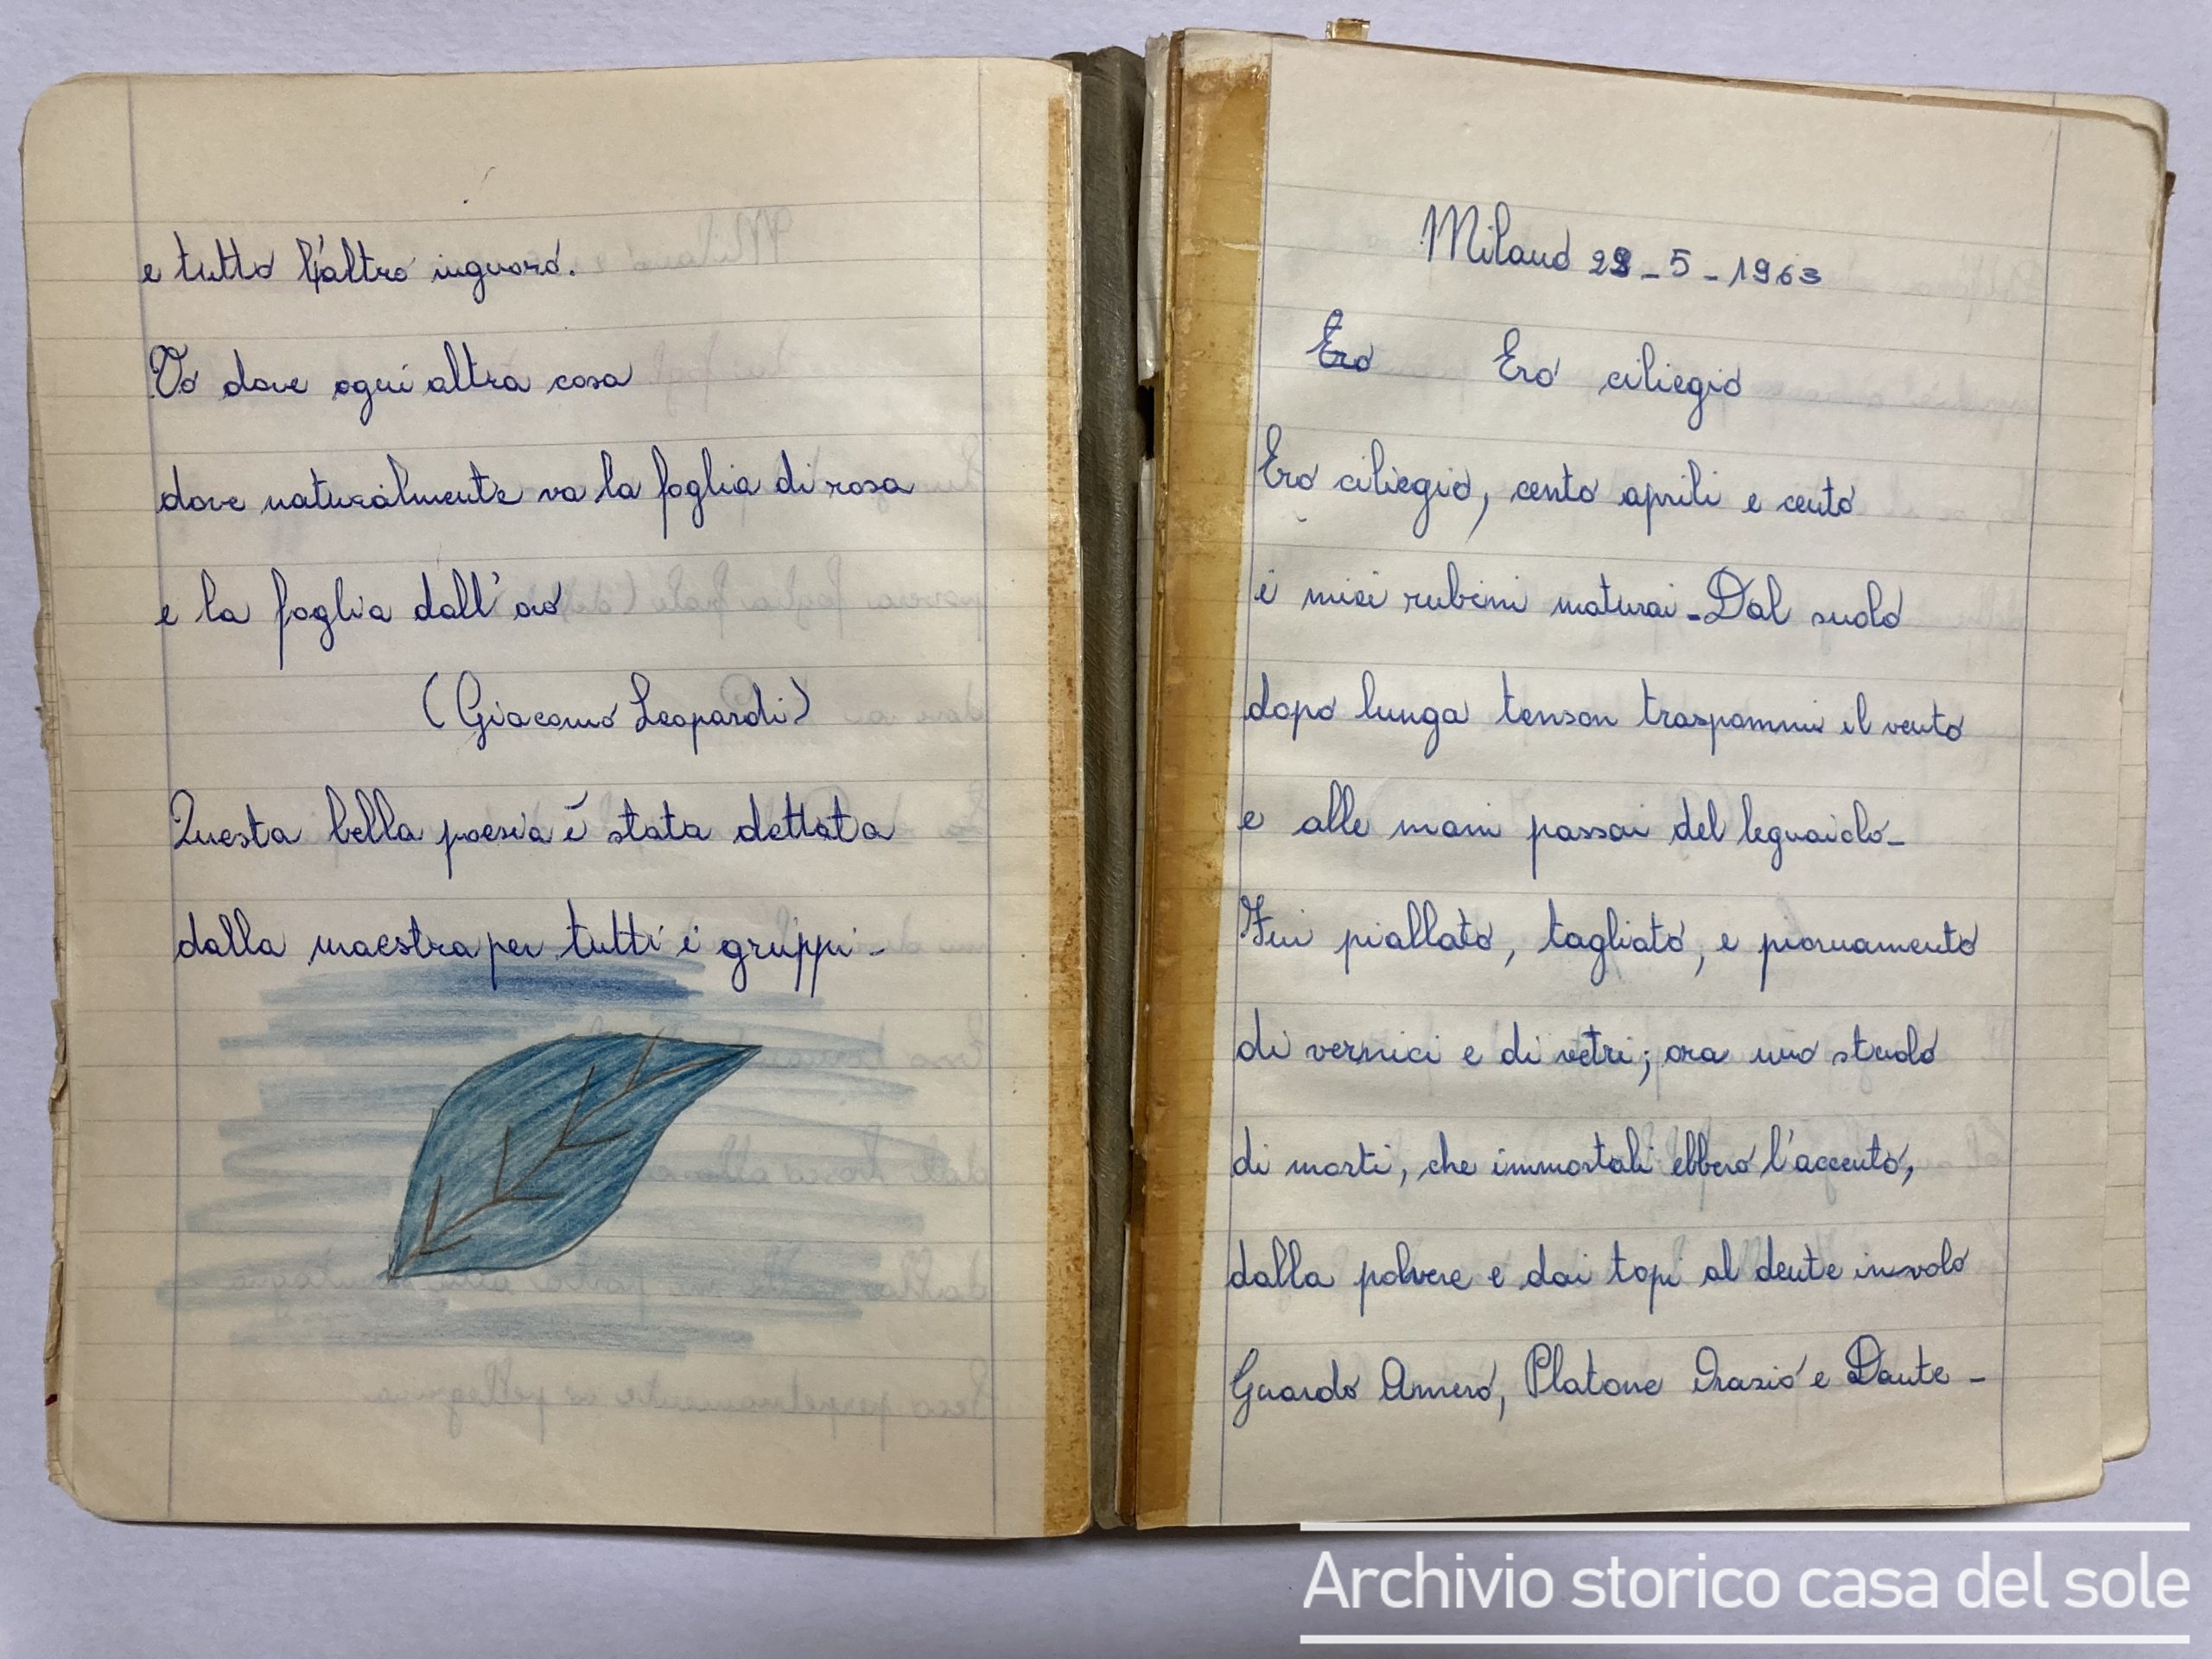 e tutto l'altro ingnoro.
Vo dove ogni altra cosa
dove naturalmente va la foglia di rosa
e la foglia dall'oro
(Giacomo Leopardi)
Questa bella poesia è stata dettata
dalla maestra per tutti i gruppi -
Milano 29-5-1963
Ero Ero ciliegio
Ero ciliegio, cento aprili e cento
i miei rubini maturai - Dal suolo
dopo lunga tenson il vento
e alle mani passai del legnaiolo -
Fui piallato, tagliato, e piornamento
di vernici e di vetri; ora uno studo
di morti, che immortali ebbero l'accento,
dalla polvere e dai topi al dente involo
Guardo Omero, Platone Orazio e Dante -
Archivio storico casa del sole